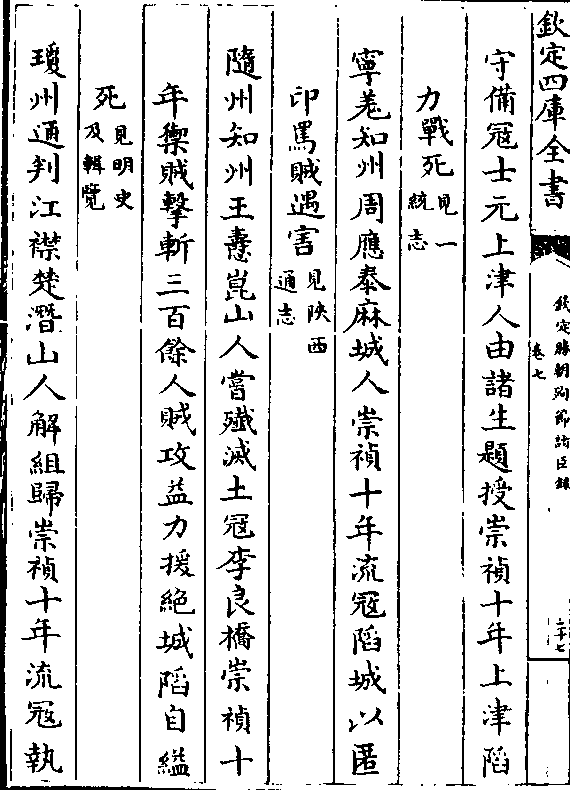 欽定四庫全書
欽定勝朝殉節諸臣錄
卷七
二十七
守備冦士元上津人由諸生題授崇禎十年上津陷
力戰死見一統志
寧羗知州周應泰麻城人崇禎十年流冦陷城以匿
印罵賊遇害見陜西通志
隨州知州王燾崑山人嘗殲滅土冦李良橋崇禎十
年禦賊擊斬三百餘人賊攻益力援絶城陷自縊
死見明史及輯覽
瓊州通判江襟楚潛山人解組歸崇禎十年流冦執